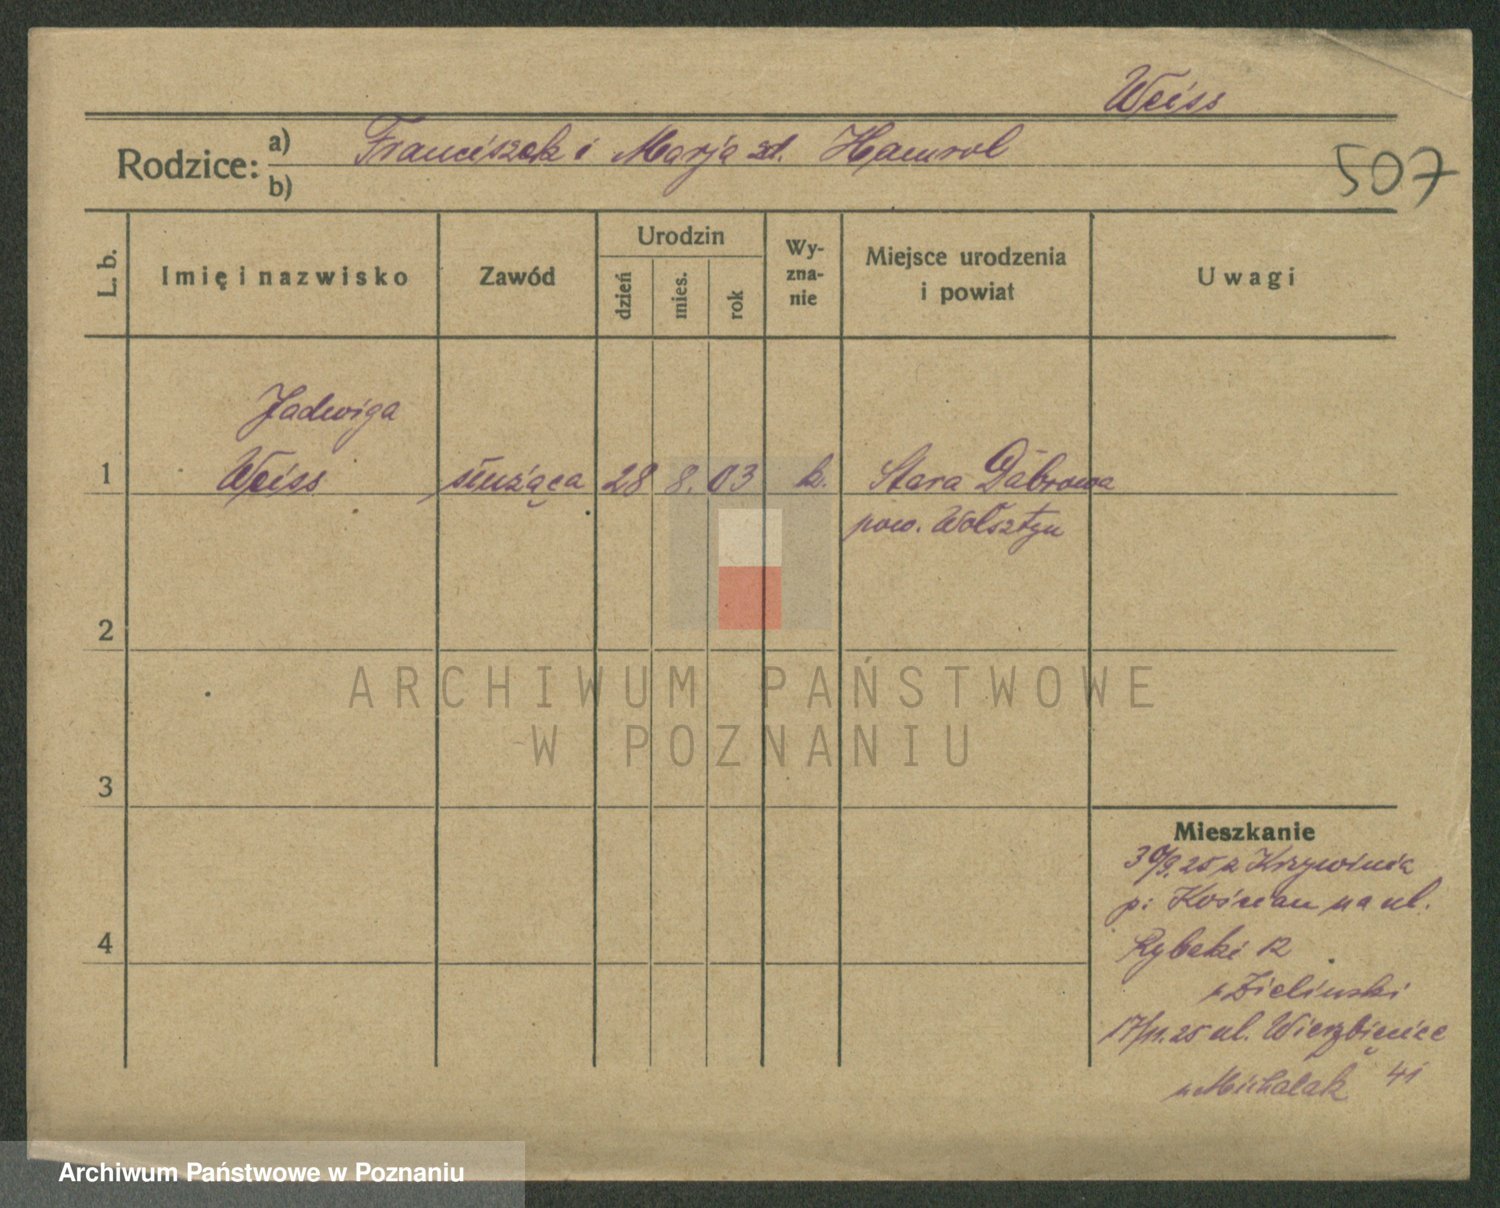 Weiss
Rodzice: a) Franciszek i Marja zd. Hamrol
b)
507
L. b.
Imię i nazwisko
Zawód
Urodzin
dzień
mies.
rok
Wy-
zna-
nie
Miejsce urodzenia
i powiat
Uwagi
Jadwiga
1 Weiss służąca 28 8. 03 k. Stara Dąbrowa
pow. Wolsztyn
2
3
4
Mieszkanie
30/9.25 z Krzywinia
p: Kościan na ul.
Rybaki 12
u Zieliński
17/11.25 ul. Wierzbięcice
u Michalak 41
ARCHIWUM PAŃSTWOWE
W POZNANIU
Archiwum Państwowe w Poznaniu